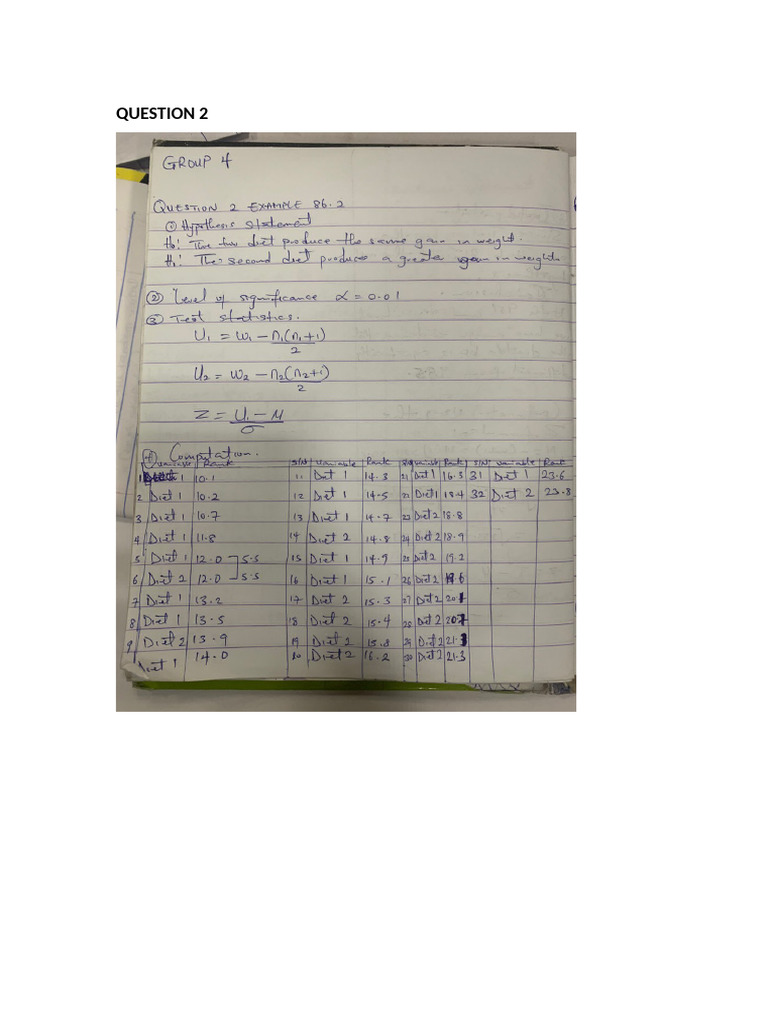 QUESTION 2
GROUP 4
QUESTION 2 EXAMPLE 86.2
① Hypothesis statement
H₀: The two diet produce the same gain in weight.
H₁: The second diet produces a greater gain in weight
② Level of significance α = 0.01
③ Test statistics.
U₁ = W₁ – n₁(n₁+1)
2
U₂ = W₂ – n₂(n₂+1)
2
Z = U₁ – M
σ
④ Computation.
variable Rank S/N variable Rank S/N variable Rank S/N variable Rank
1 Diet 1 10.1 11 Diet 1 14.3 21 Diet 1 16.3 31 Diet 1 23.6
2 Diet 1 10.2 12 Diet 1 14.5 22 Diet 1 18.4 32 Diet 2 23.8
3 Diet 1 10.7 13 Diet 1 14.7 23 Diet 2 18.8
4 Diet 1 11.8 14 Diet 2 14.8 24 Diet 2 18.9
5 Diet 1 12.0 5.5 15 Diet 1 14.9 25 Diet 2 19.2
6 Diet 2 12.0 5.5 16 Diet 1 15.1 26 Diet 2
7 Diet 1 13.2 17 Diet 2 15.3 27 Diet 2 20.1
8 Diet 1 13.5 18 Diet 2 15.4 28 Diet 2 20.7
9 Diet 2 13.9 19 Diet 2 15.8 29 Diet 2
Diet 1 14.0 20 Diet 2 16.2 30 Diet 21.3